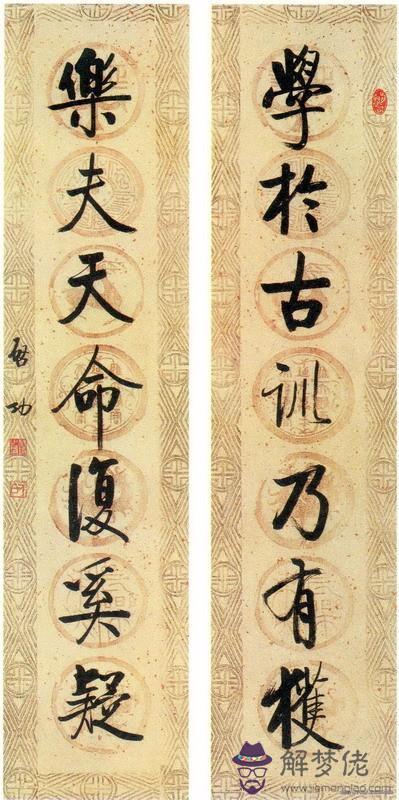 學於古訓乃有獲
樂夫天命復奚疑
啟功
解梦佬